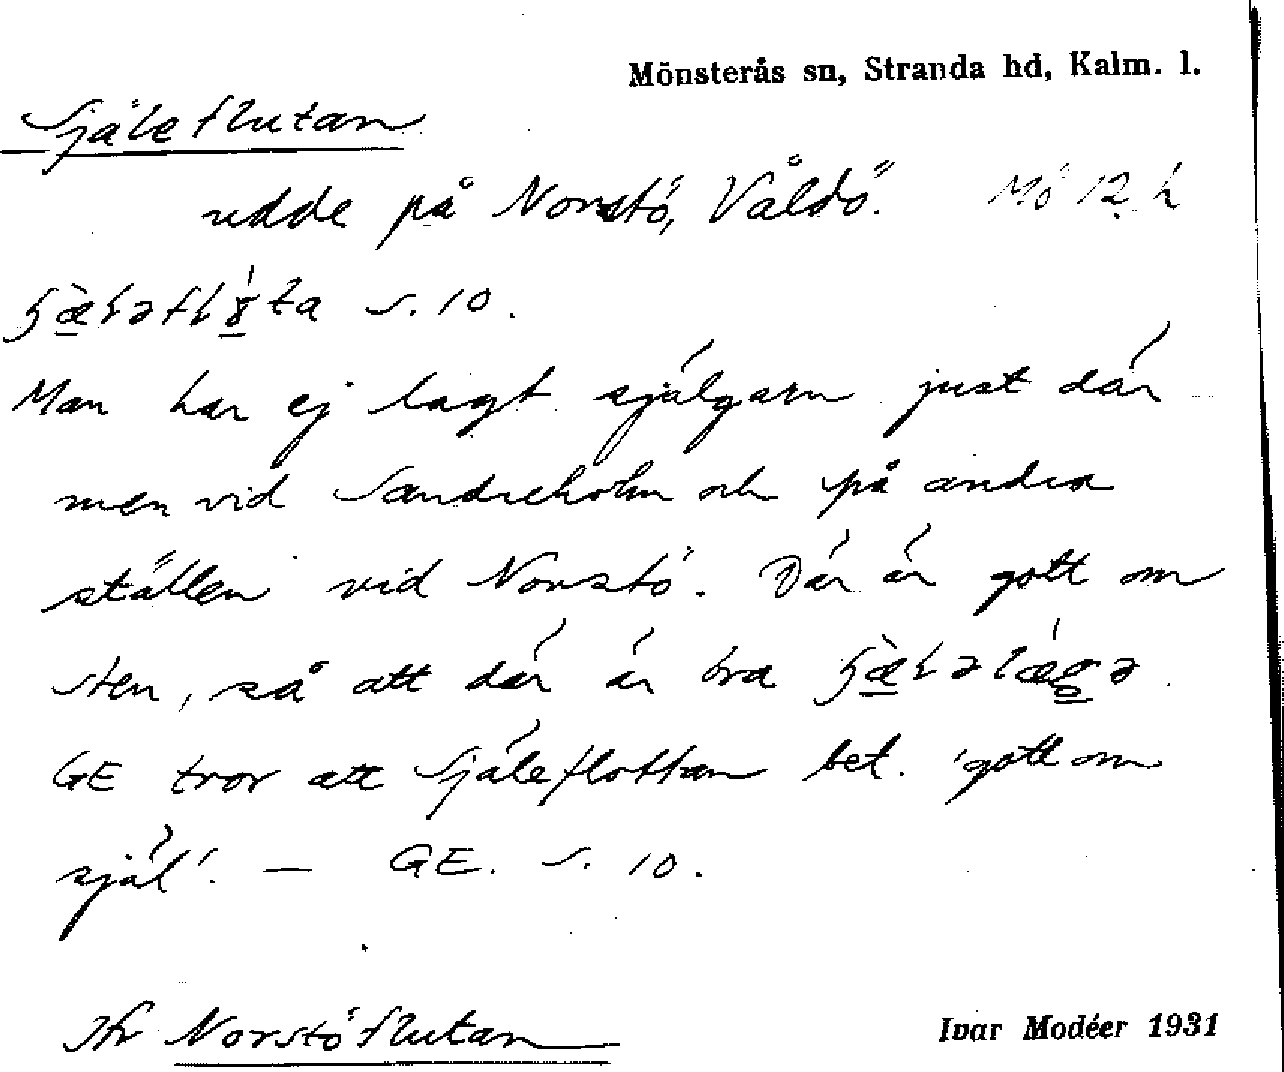 Mönsterås sn, Stranda hd, Kalm. l.
Själeflutan
udde på Norstö, Våldö. Mö 12 h
S. 10.
Man har ej lagt själgarn just där
men vid Sandreholm och på andra
ställen vid Norstö. Där är gott om
sten, så att där är bra
GE tror att Själeflottan bet. 'gott om
själ'. — GE. S. 10.
Jfr Norstöflutan
Ivar Modéer 1931